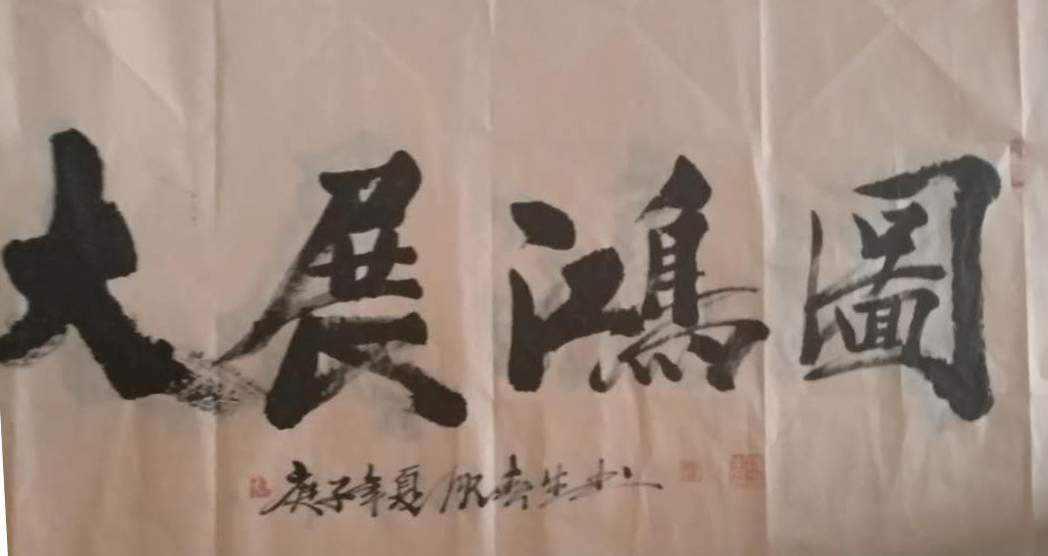 大展鴻圖
庚子年夏